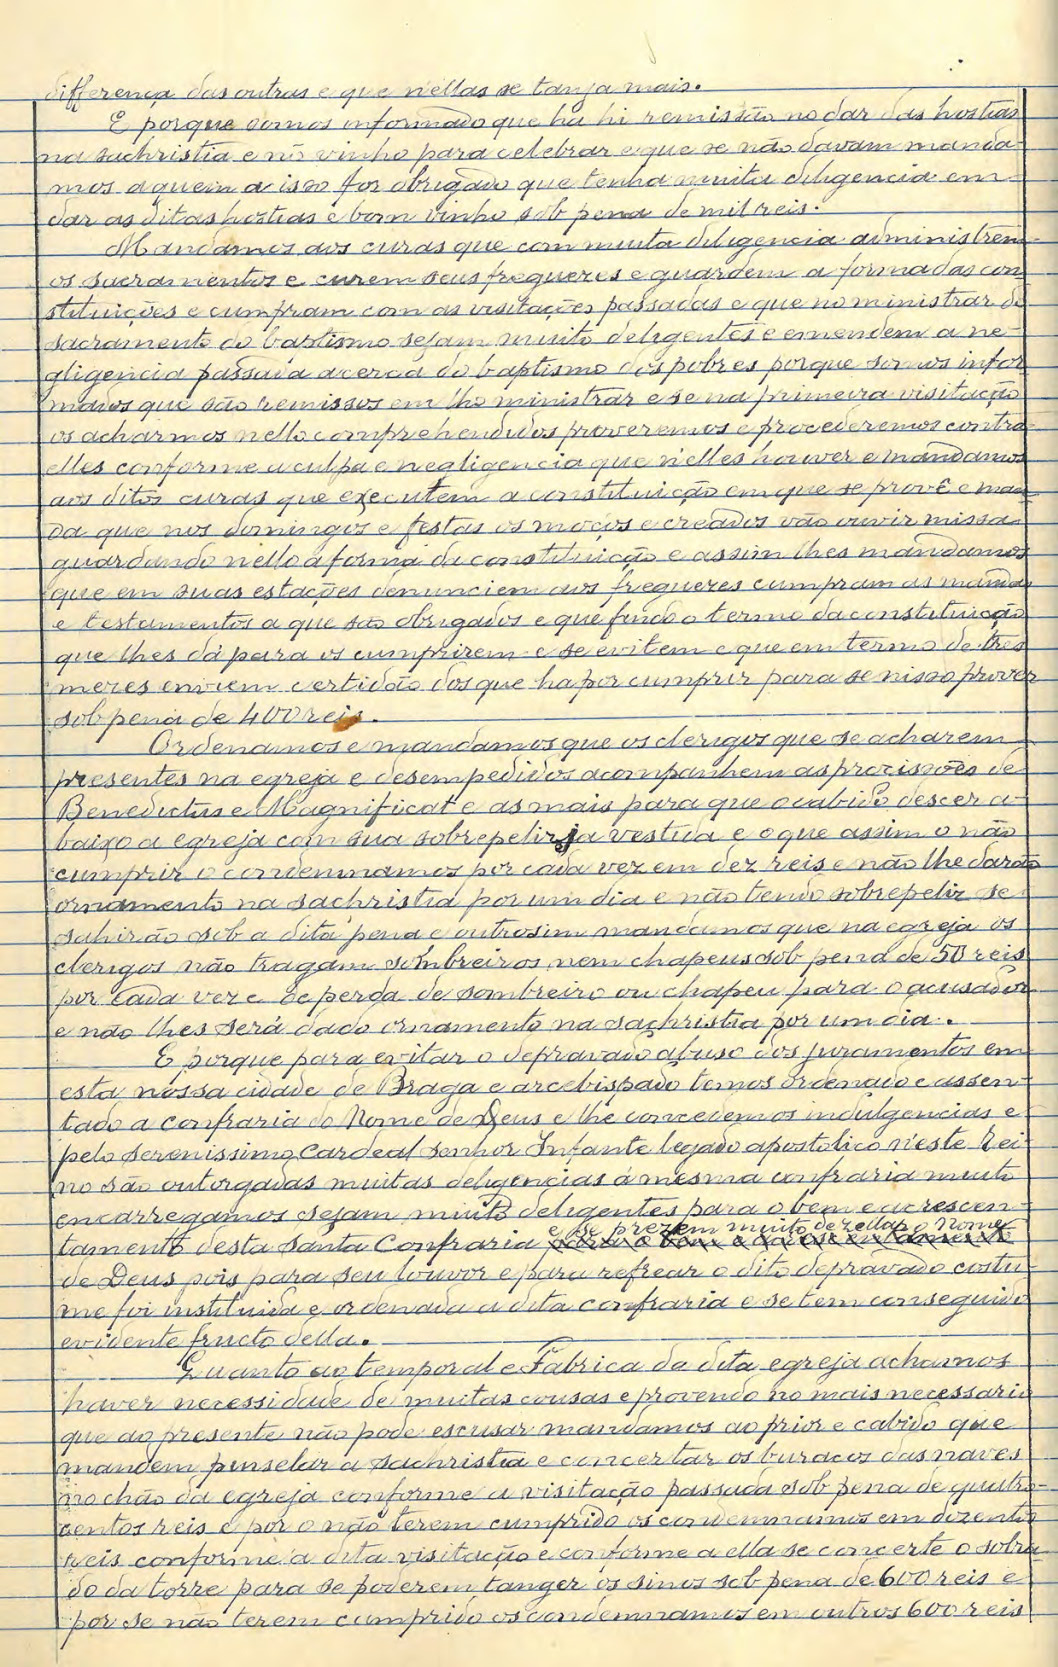 differença das outras e que n'ellas se tanja mais.
E porque somos informado que ha hi remissão no dar das hostias
na sachristia e no vinho para celebrar e que se não davam manda-
mos a quem a isso for obrigado que tenha muita diligencia em
dar as ditas hostias e bom vinho sob pena de mil reis.
Mandamos aos curas que com muita deligencia administrem
os sacramentos e curem seus freguezes e guardem a forma das con
stituições e cumpram com as visitações passadas e que no ministrar do
sacramento do baptismo sejam muito deligentes e emendem a ne-
gligencia passada acerca do baptismo dos pobres porque somos infor
mados que são remissos em lho ministrar e se na primeira visitação
os acharmos nello comprehendidos proveremos e procederemos contra
elles conforme a culpa e negligencia que n'elles houver e mandamos
aos ditos curas que executem a constituição em que se provê e man
da que nos domingos e festas os moços e creados vão ouvir missa
guardando nello a forma da constituição e assim lhes mandamos
que em suas estações denunciem aos freguezes cumpram as manda
e testamentos a que são obrigados e que findo o termo da constituição
que lhes dá para os cumprirem e se evitem e que em termo de tres
mezes enviem certidão dos que ha por cumprir para se nisso prover
sob pena de 400 reis.
Ordenamos e mandamos que os clerigos que se acharem
presentes na egreja e desempedidos acompanhem as procissões de
Benedictus e Magnificat e as mais para que o cabido descer a-
baixo a egreja com sua sobrepeliz ja vestida e o que assim o não
cumprir o condemnamos por cada vez em dez reis e não lhe darão
ornamento na sachristia por um dia e não tendo sobrepeliz se
sahirão sob a dita pena e outrosim mandamos que na egreja os
clerigos não tragam sombreiros nem chapeus sob pena de 50 reis
por cada vez e de perda de sombreiro ou chapeu para o acusador
e não lhes será dado ornamento na sachristia por um dia.
E porque para evitar o depravado abuso dos juramentos em
esta nossa cidade de Braga e arcebispado temos ordenado e assen-
tado a confraria do Nome de Deus e lhe concedemos indulgencias e
pelo serenissimo Cardeal senhor Infante legado apostolico n'este Rei-
no são outorgadas muitas deligencias á mesma confraria muito
encarregamos sejam muito deligentes para o bem e acrescen-
tamento desta santa Confraria e se prezem muito de zellar o nome
de Deus pois para seu louvor e para refrear o dito depravado costu-
me foi instituida e ordenada a dita confraria e se tem conseguido
evidente fructo della.
Quanto ao temporal e Fabrica da dita egreja achamos
haver necessidade de muitas cousas e provendo no mais necessario
que ao presente não pode escusar mandamos ao prior e cabido que
mandem pinselar a sachristia e concertar os buracos das naves
no chão da egreja conforme a visitação passada sob pena de quatro-
centos reis e por o não terem cumprido os condemnamos em dozentos
reis conforme a dita visitação e conforme a ella se concerte o sobra-
do da torre para se poderem tanger os sinos sob pena de 600 reis e
por se não terem cumprido os condemnamos em outros 600 reis